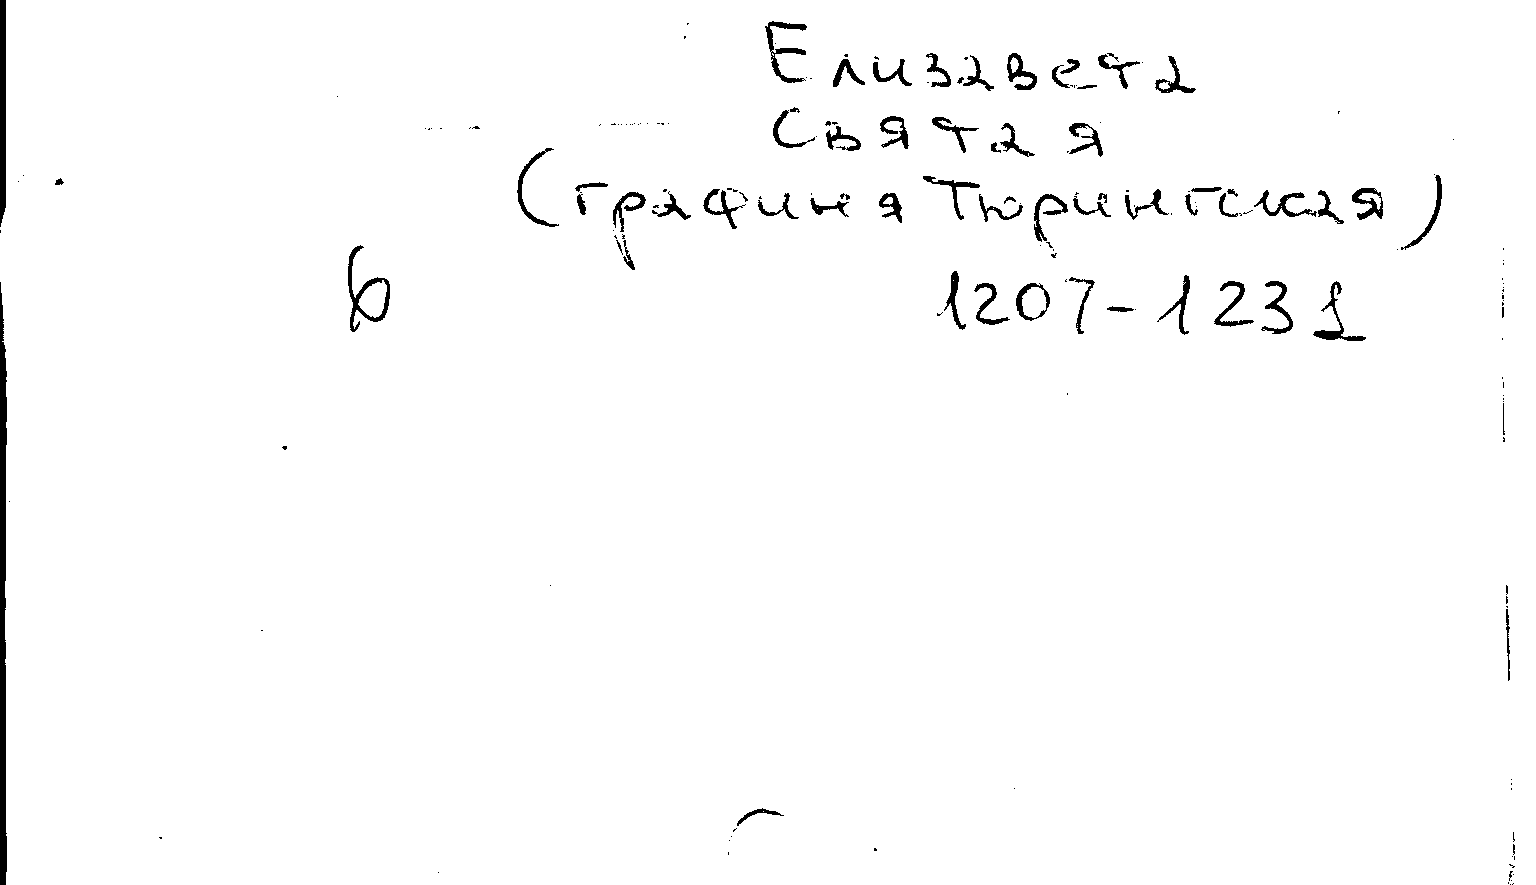 Елизавета
Святая
(графиня Тюрингская)
1207-1231